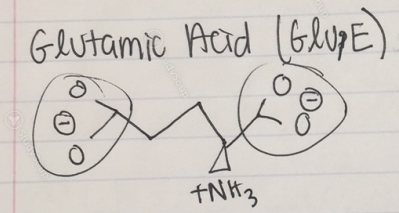 Glutamic Acid (Glu, E)
O O
⊖ ⊖
O O
+NH3